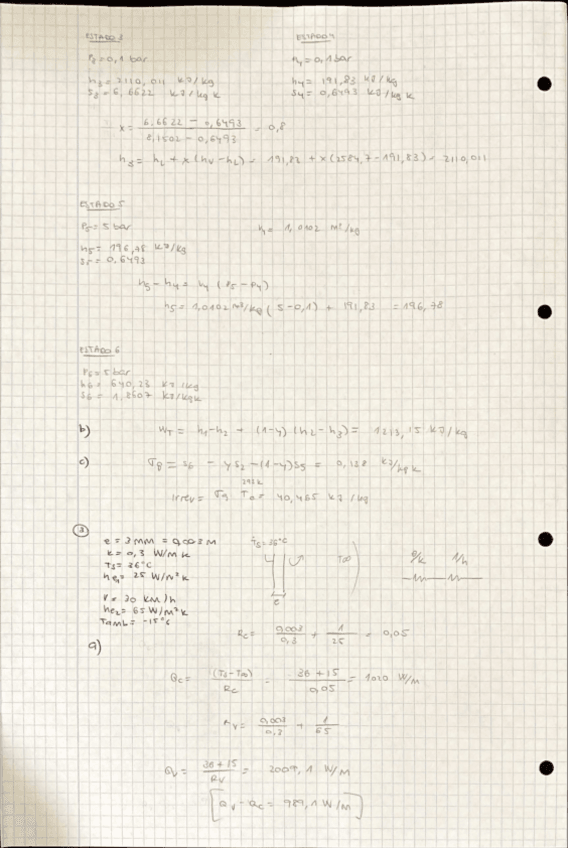 ESTADO 3
P3 = 0,1 bar
h3 = 2110,011 kJ/kg
S3 = 6,6622 kJ/kg K
ESTADO 4
P4 = 0,1 bar
h4 = 191,83 kJ/kg
S4 = 0,6493 kJ/kg K
x = (6,6622 - 0,6493) / (8,1502 - 0,6493) = 0,8
h3 = hL + x (hV - hL) = 191,82 + x (2584,7 - 191,83) = 2110,011
ESTADO 5
P5 = 5 bar
V4 = 1,0102 m³/kg
h5 = 196,48 kJ/kg
S5 = 0,6493
h5 - h4 = V4 (P5 - P4)
h5 = 1,0102 m³/kg (5 - 0,1) + 191,83 = 196,78
ESTADO 6
P6 = 5 bar
h6 = 640,23 kJ/kg
S6 = 1,8607 kJ/kg K
b) WT = h1 - h2 + (1-y) (h2 - h3) = 1213,15 kJ/kg
c) σg = S6 - y S2 - (1-y) S5 = 0,138 kJ/kg K
Irrev = σg T0 = 40,465 kJ/kg
③
e = 3 mm = 0,003 m
k = 0,3 W/m K
TS = 36°C
he1 = 25 W/m² K
TS = 36°C
T∞
e/k
1/h
e
V = 30 km/h
he2 = 65 W/m² K
Tamb = -15°C
a)
Rc = 0,003/0,3 + 1/25 = 0,05
Qc = (TS - T∞) / Rc = (36 + 15) / 0,05 = 1020 W/m
RV = 0,003/0,3 + 1/65
QV = (36 + 15) / RV = 2009,1 W/m
[QV - Qc = 989,1 W/m]